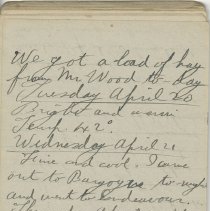 We got a load of hay
from Mr. Wood to-day
Tuesday April 20
Bright and warm
Temp 42°.
Wednesday April 21
Fine and cool. I came
out to to-night
and went to Endeavour.